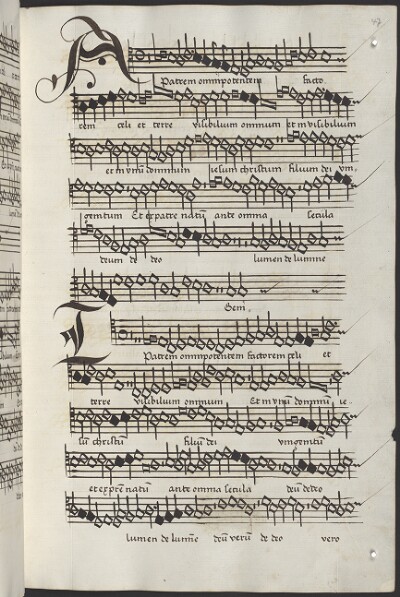 A
Patrem omnipotentem facto
rem celi et terre visibilium omnium et invisibilium
et in vnum dominum iesum christum filium dei vni,
genitum Et ex patre natū ante omnia secula
deum de deo lumen de lumine
Gem.
T
Patrem omnipotentem factorem celi et
terre visibilium omnium Et in vnū dominū ie-
sū christū filiū dei vnigenitū
et ex prē natū ante omnia secula deū de deo
lumen de lumīe deū verū de deo vero